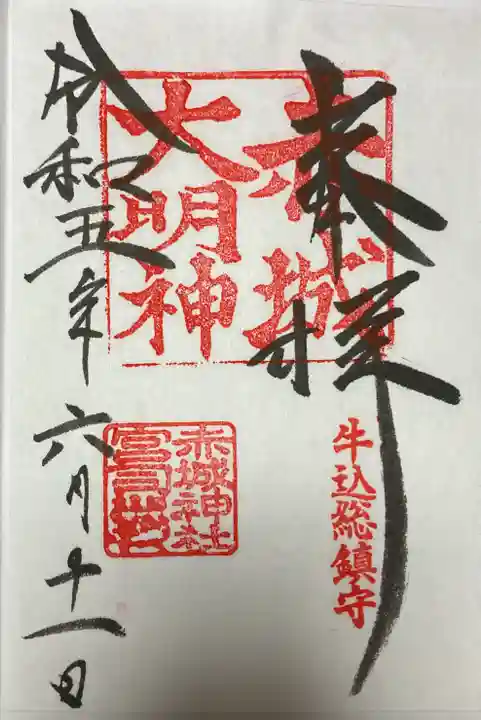 奉拝
赤城
大明神
牛込総鎮守
赤城神社
宮司之印
令和五年六月十一日